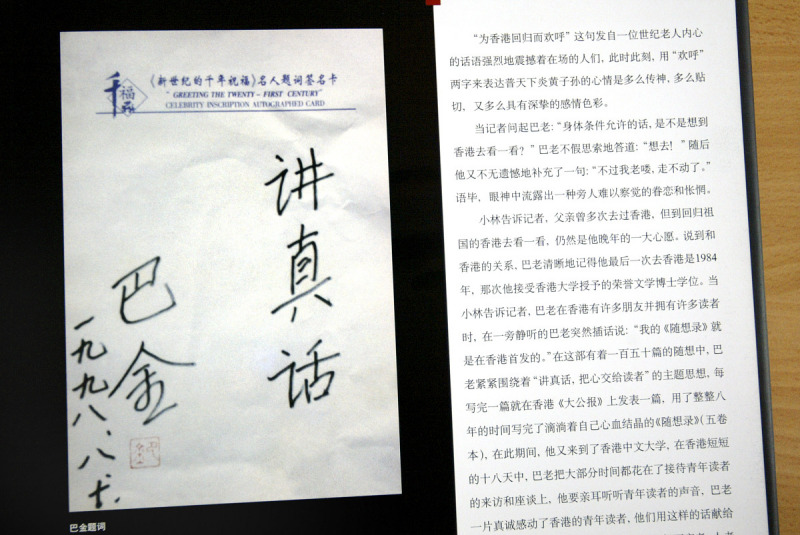 千
福
《新世纪的千年祝福》名人题词签名卡
"GREETING THE TWENTY-FIRST CENTURY"
CELEBRITY INSCRIPTION AUTOGRAPHED CARD
讲真话
巴金
一九九八.八.十.
巴金题词
“为香港回归而欢呼”这句发自一位世纪老人内心
的话语强烈地震撼着在场的人们，此时此刻，用“欢呼”
两字来表达普天下炎黄子孙的心情是多么传神，多么贴
切，又多么具有深挚的感情色彩。
当记者问起巴老：“身体条件允许的话，是不是想到
香港去看一看？”巴老不假思索地答道：“想去！”随后
他又不无遗憾地补充了一句：“不过我老喽，走不动了。”
语毕，眼神中流露出一种旁人难以察觉的眷恋和怅惘。
小林告诉记者，父亲曾多次去过香港，但到回归祖
国的香港去看一看，仍然是他晚年的一大心愿。说到和
香港的关系，巴老清晰地记得他最后一次去香港是1984
年，那次他接受香港大学授予的荣誉文学博士学位。当
小林告诉记者，巴老在香港有许多朋友并拥有许多读者
时，在一旁静听的巴老突然插话说：“我的《随想录》就
是在香港首发的。”在这部有着一百五十篇的随想中，巴
老紧紧围绕着“讲真话，把心交给读者”的主题思想，每
写完一篇就在香港《大公报》上发表一篇，用了整整八
年的时间写完了滴滴着自己心血结晶的《随想录》（五卷
本），在此期间，他又来到了香港中文大学，在香港短短
的十八天中，巴老把大部分时间都花在了接待青年读者
的来访和座谈上，他要亲耳听听青年读者的声音，巴老
一片真诚感动了香港的青年读者，他们用这样的话献给